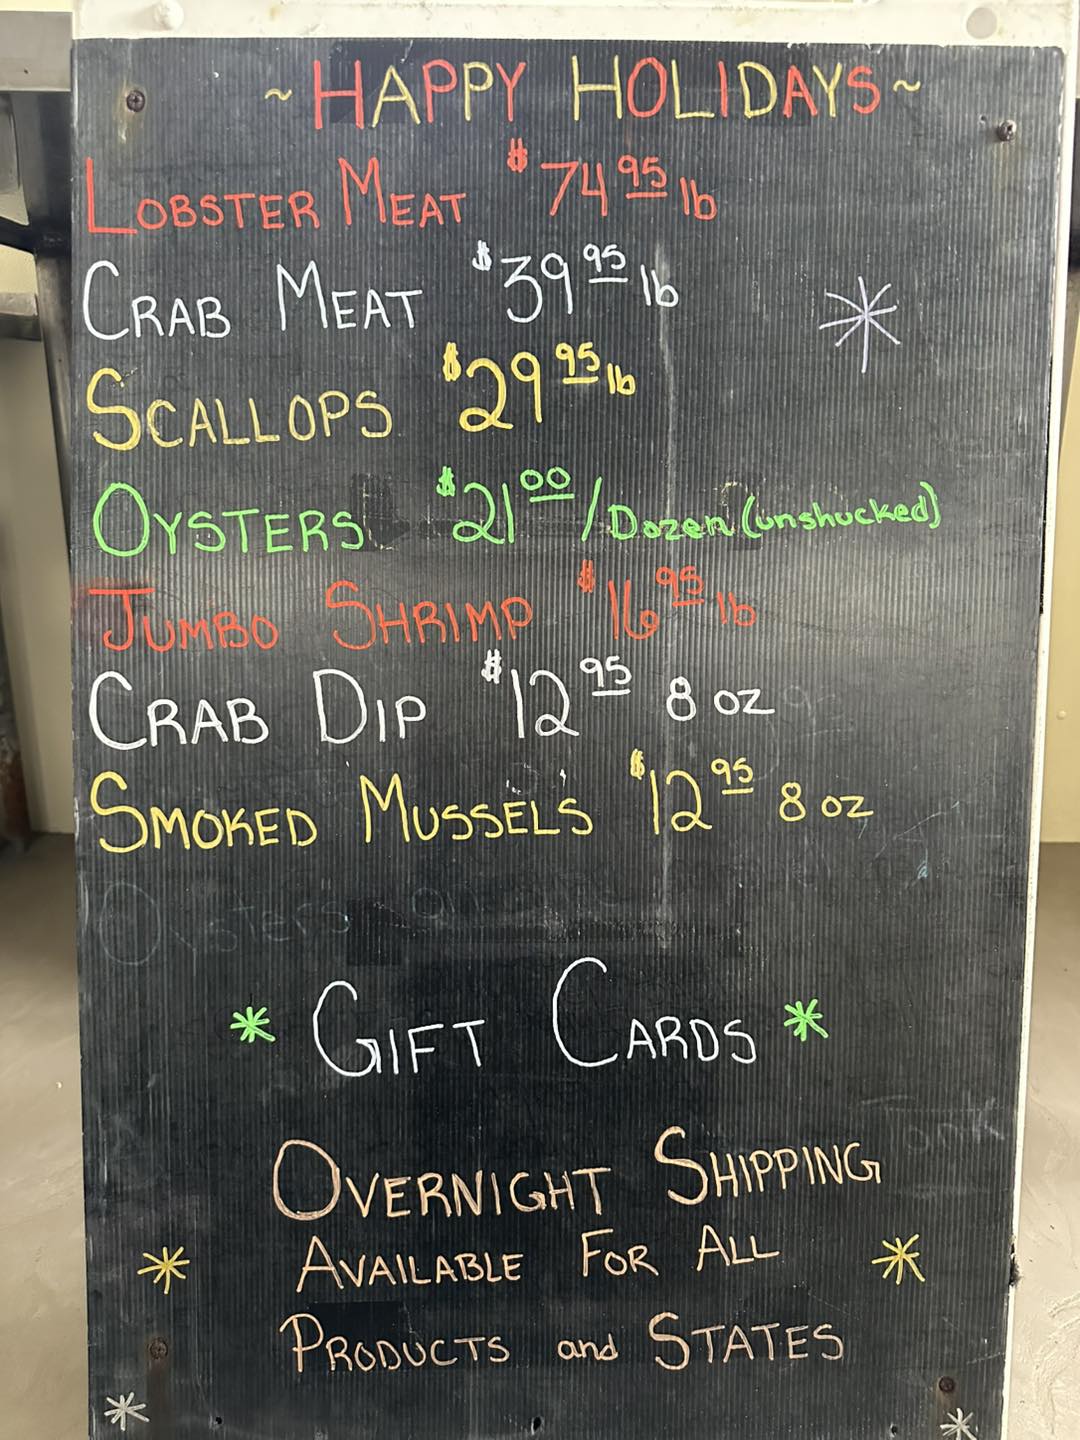 ~ HAPPY HOLIDAYS ~
LOBSTER MEAT $74.95 lb
CRAB MEAT $39.95 lb
SCALLOPS $29.95 lb
OYSTERS $21.00/Dozen (unshucked)
JUMBO SHRIMP $16.95 lb
CRAB DIP $12.95 8 oz
SMOKED MUSSELS $12.95 8 oz
Oysters on
* GIFT CARDS *
OVERNIGHT SHIPPING
AVAILABLE FOR ALL
PRODUCTS and STATES